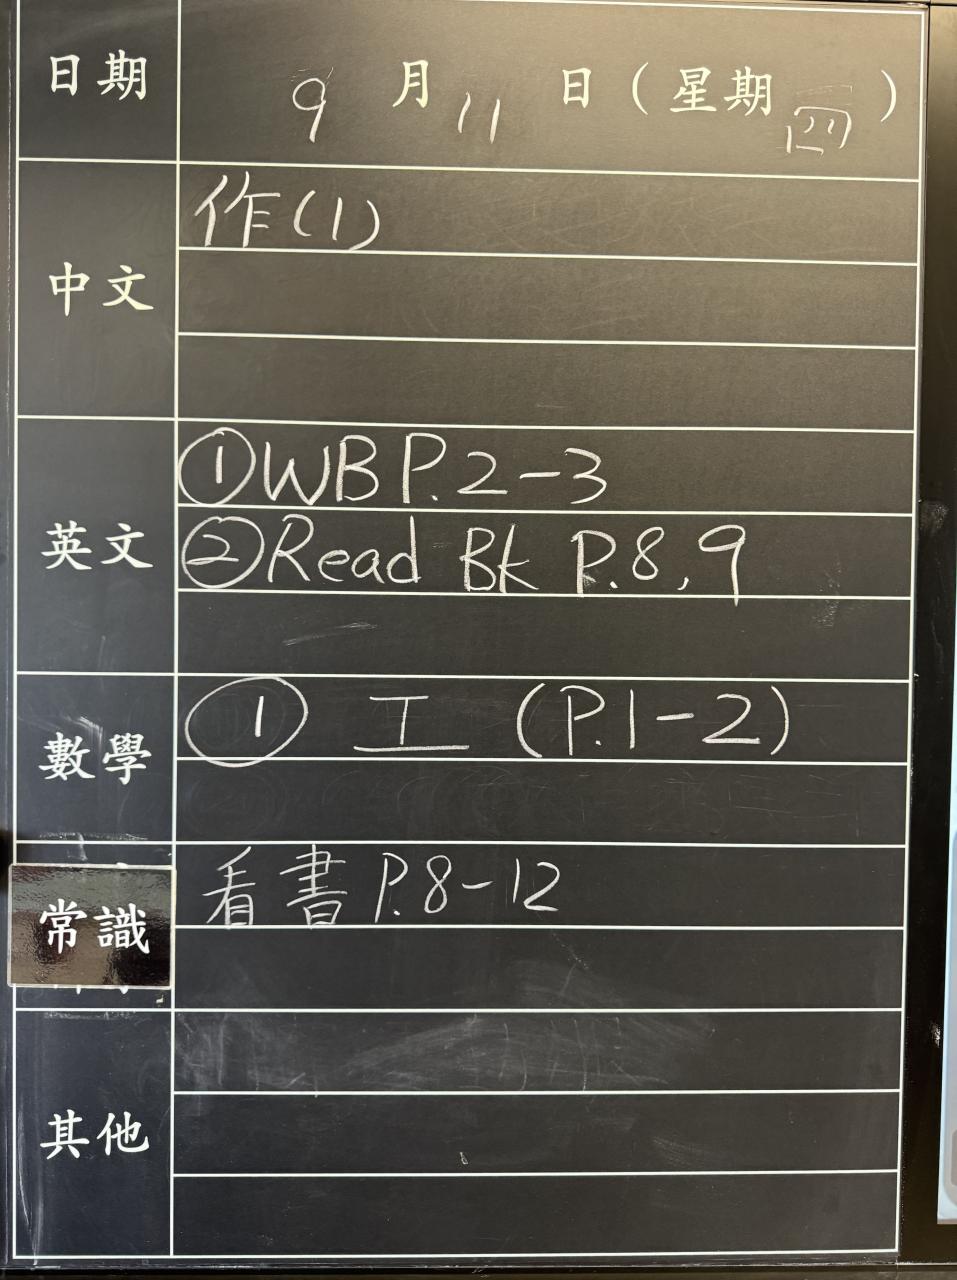 日期 9月11日(星期四)
中文 作(1)
英文 ①WB P.2-3
②Read Bk P.8,9
數學 ① 工 (P.1-2)
常識 看書 P.8-12
其他